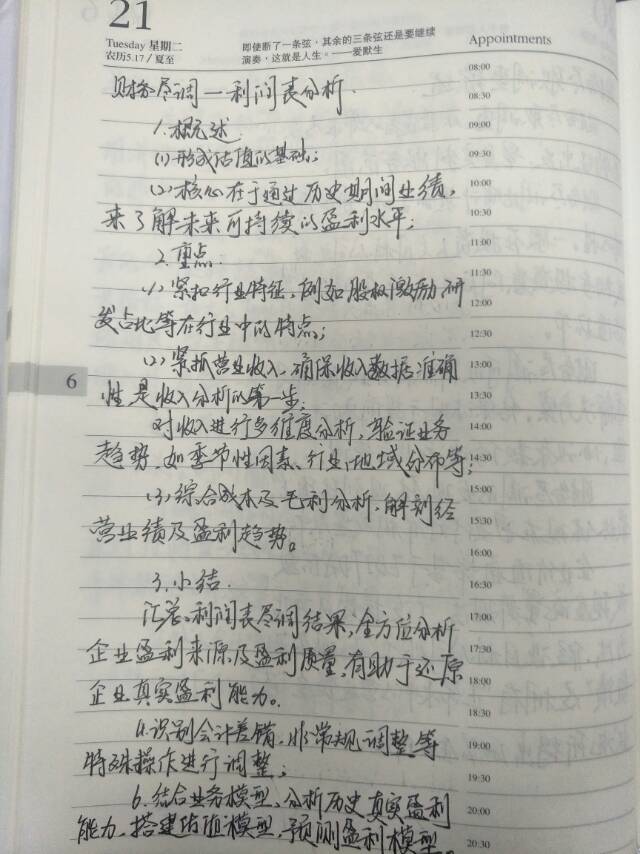 21
Tuesday 星期二
农历5.17/夏至
即使断了一条弦，其余的三条弦还是要继续
演奏，这就是人生。——爱默生
Appointments
财务尽调—利润表分析.
1.概述.
(1)形成估值的基础;
(2)核心在于通过历史期间业绩,
来了解未来可持续的盈利水平;
2.重点.
(1)紧扣行业特征,例如股权激励,研
发占比等在行业中的特点;
(2)紧抓营业收入,确保收入数据准确
性是收入分析的第一步;
对收入进行多维度分析,验证业务
趋势,如季节性因素、行业、地域分布等;
(3)综合成本及毛利分析,解剖经
营业绩及盈利趋势。
3.小结.
汇总利润表尽调结果,全方位分析
企业盈利来源及盈利质量,有助于还原
企业真实盈利能力。
a.识别会计差错,非常规调整等
特殊操作进行调整;
b.结合业务模型,分析历史真实盈利
能力,搭建估值模型,预测盈利模型。
6
08:00
08:30
09:00
09:30
10:00
10:30
11:00
11:30
12:00
12:30
13:00
13:30
14:00
14:30
15:00
15:30
16:00
16:30
17:00
17:30
18:00
18:30
19:00
19:30
20:00
20:30